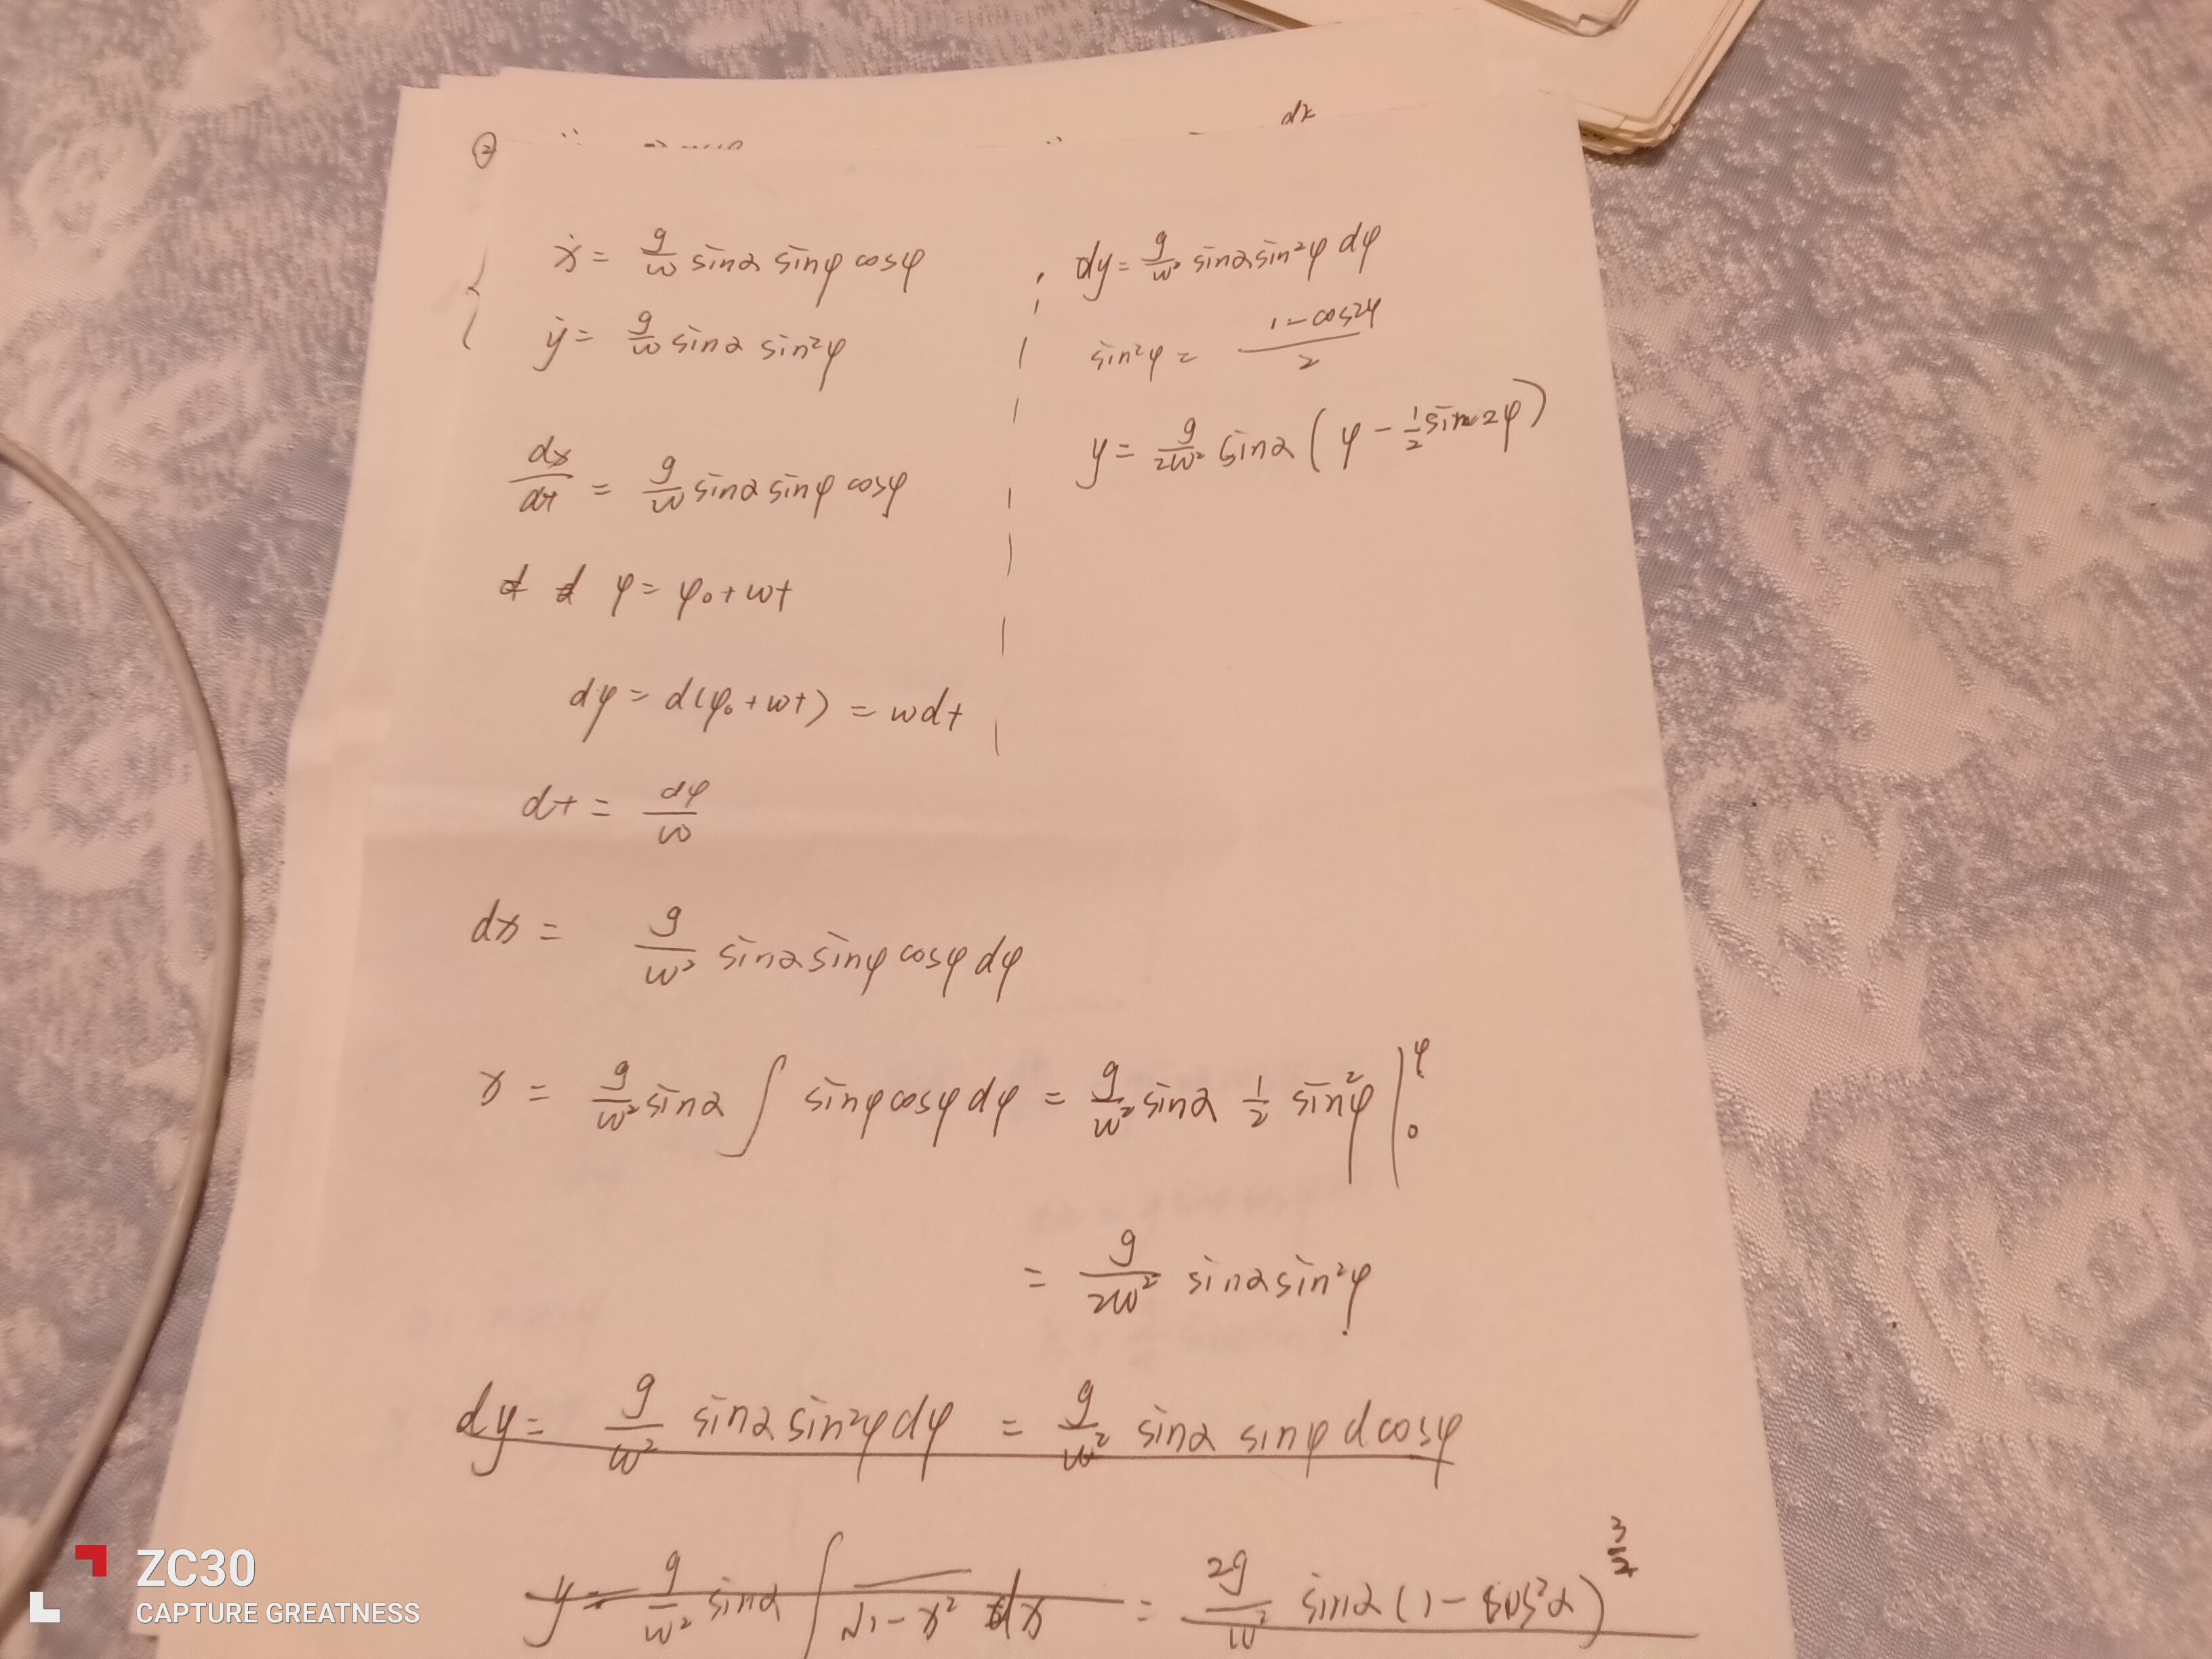 ②
dx
ẋ = g/ω sinα sinφ cosφ
ẏ = g/ω sinα sin²φ
dx/dt = g/ω sinα sinφ cosφ
φ = φ₀ + ωt
dφ = d(φ₀ + ωt) = ωdt
dt = dφ/ω
dx = g/ω² sinα sinφ cosφ dφ
x = g/ω² sinα ∫ sinφ cosφ dφ = g/ω² sinα 1/2 sin²φ |₀^φ
= g/2ω² sinα sin²φ
dy = g/ω² sinα sin²φ dφ = g/ω² sinα sinφ d cosφ
y = g/ω² sinα ∫ √1-x² dx = 2g/ω² sinα (1 - cos²α)^3/2
dy = g/ω² sinα sin²φ dφ
sin²φ = 1-cos2φ/2
y = g/2ω² sinα (φ - 1/2 sin2φ)
ZC30
CAPTURE GREATNESS